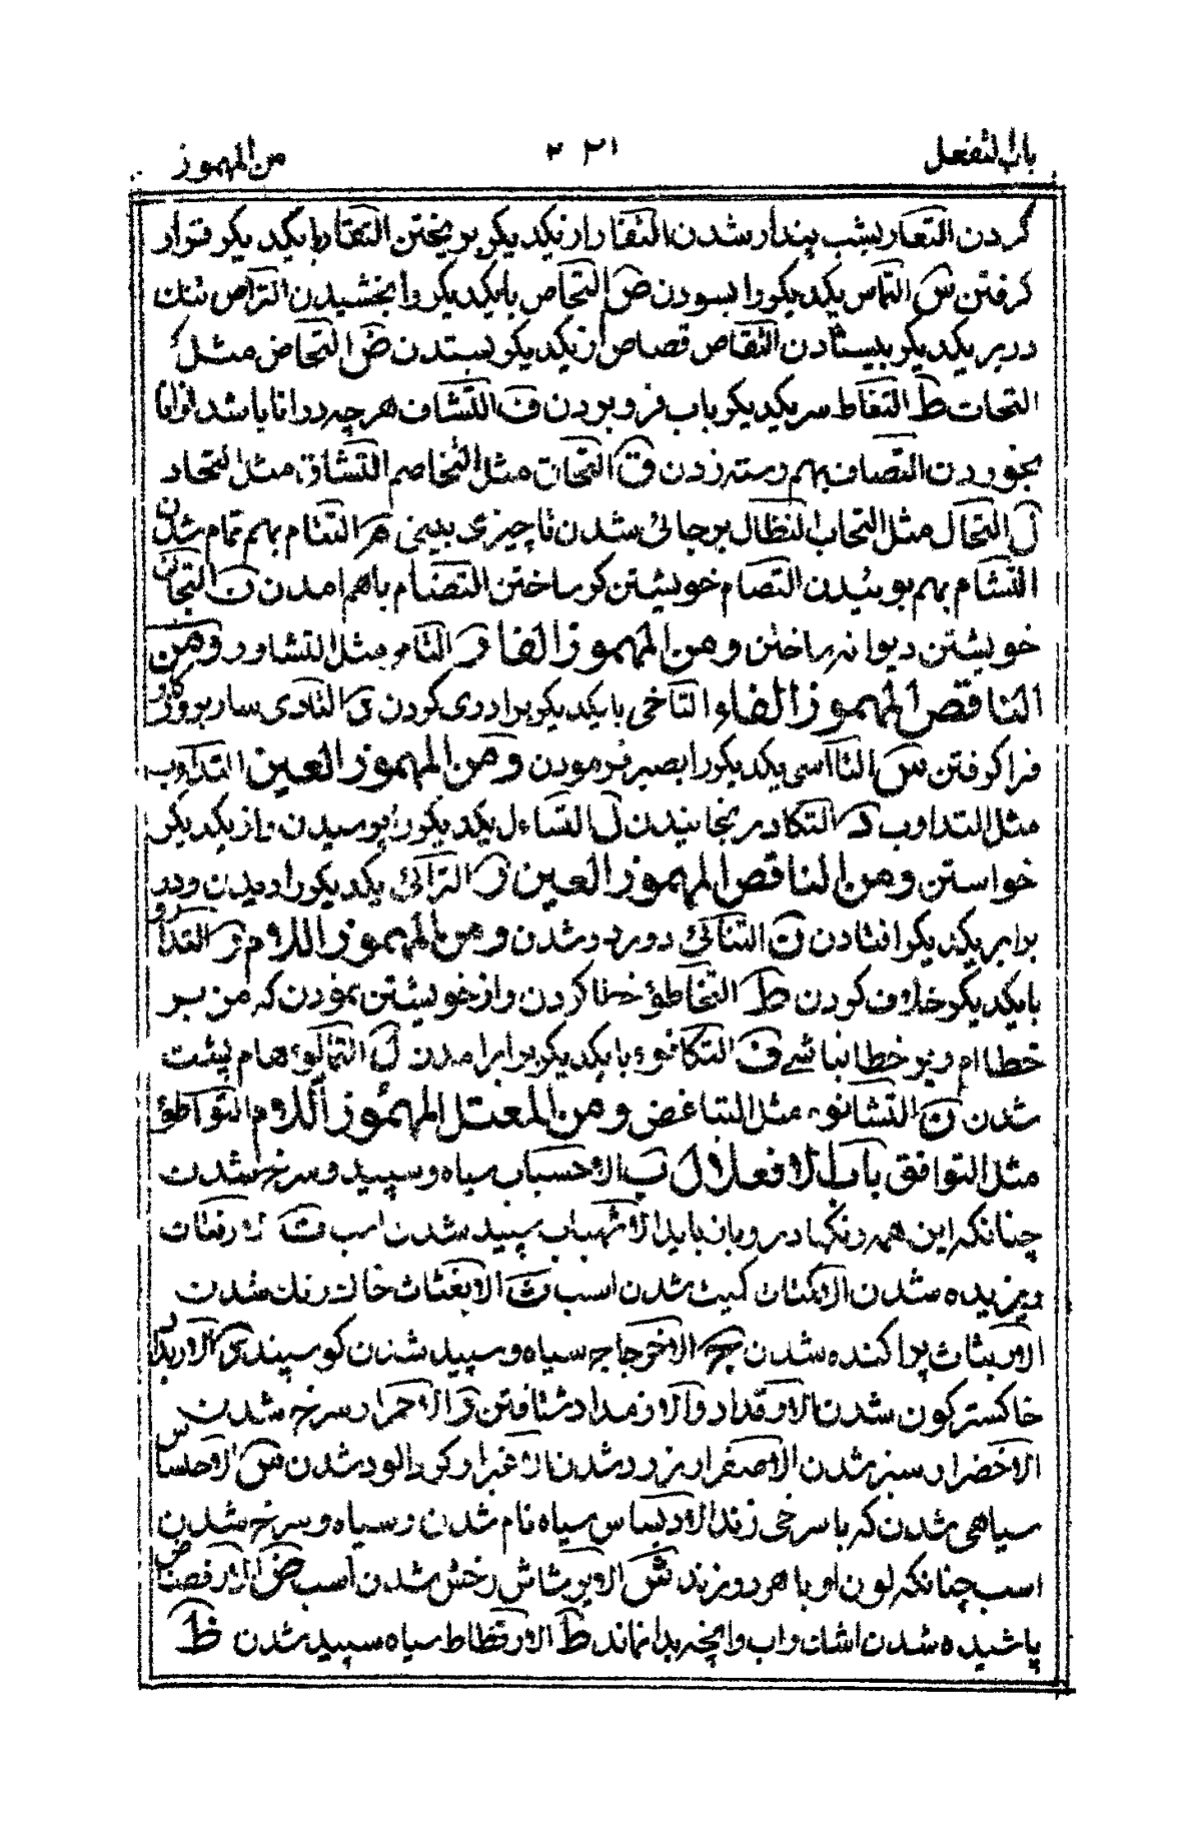 باب التفعل ٢٢١ من المهموز
كردن التعار بشب بيدار شدن التفار از يكديكر بريختن التقار بايكديكر قرار
كرفتن س التماس يكديكر را بسودن ص التحاص بايكديكر وابخشيدن التراص تنك
دربر يكديكر بيستادن التقاص قصاص از يكديكر بستدن ض التحاض مثل
التحاث ط التغاط سر يكديكر باب فرو بردن ف التشاف هر چه در انا باشد
بخوردن التصاف بهم رسته زدن ق التحاق مثل التخاصم التشاق مثل التحاد
ل التحال مثل التحاب التظال بر جائ شدن تا چيزى بينى م التتام بهم تمام شدن
التشام بهم بوئيدن التصام خويشتن كر ساختن التضام باهم امدن ن التجان
خويشتن ديوانه ساختن ومن المهموز الفا ر التامر مثل التشاور ومن
الناقص المهموز الفاء التاخى بايكديكر برادرى كردن ى التادى ساز روزكار
فرا كرفتن س التاسى يكديكر را بصبر فرمودن ومن المهموز العين التداوب
مثل التداوب د التكاد برنجانيدن ل التساءل يكديكر را پرسيدن واز يكديكر
خواستن ومن الناقص المهموز العين ر الترائ يكديكر را ديدن ودر
برابر يكديكر افتادن ن التنائ دور شدن ومن المهموز اللام ر التدارو
بايكديكر خلاف كردن ط التخاطؤ خطا كردن واز خويشتن نمودن كه من بر
خطاام وبر خطا نباشے ف التكافوء بايكديكر برابر امدن ل التمالوء هام پشت
شدن ن التشانوء مثل التباغض ومن المعتل المهموز اللام التواطؤ
مثل التوافق باب الافعلال ب الاحسباب سياه وسپيد وسرخ شدن
چنانكه اين همه رنكها در وبان بايد الاشهباب سپيد شدن اسب ت الارفتات
ريزيده شدن الاكمتات كميت شدن اسب ث الابغثاث خاك رنك شدن
الاربثاث پراكنده شدن ج الاخرجاج سياه وسپيد شدن كوسپند د الاربداد
خاكستر كون شدن الارقداد والارمداد شتافتن ر الاحمرار سرخ شدن
الاخضرار سبز شدن الاصفرار زرد شدن الاغبرار كرد الود شدن س الاحلساس
سياهى شدن كه با سرخى زند الادبساس سياه فام شدن وسياه وسرخ شدن
اسب چنانكه لون او با هر دو زند ش الابرشاش رخش شدن اسب ض الارفضاض
پاشيده شدن اشك واب وانچه بدان ماند ط الارقطاط سياه سپيد شدن ظ